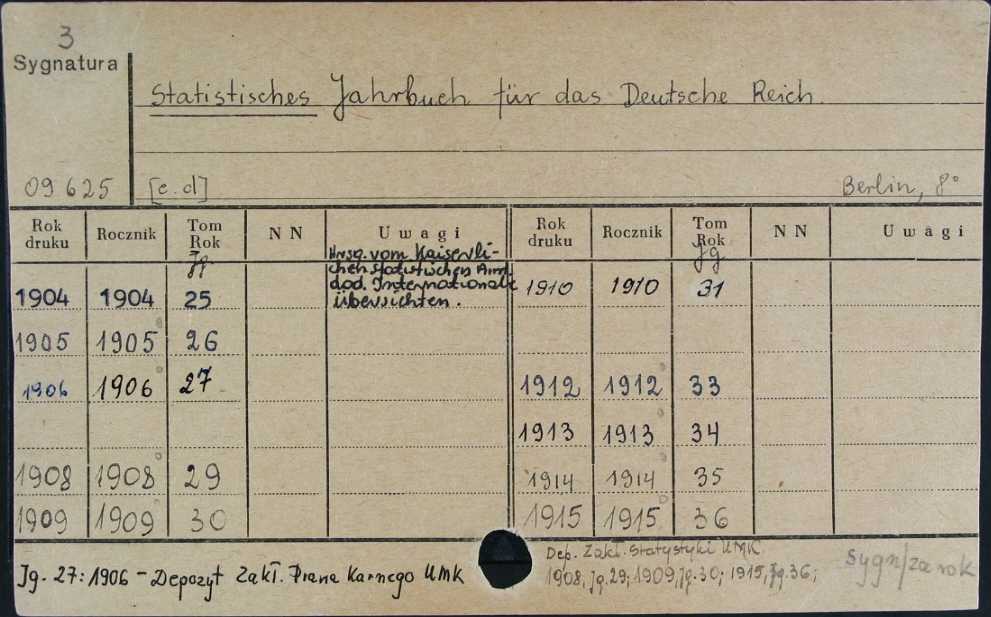 3
Sygnatura
Statistisches Jahrbuch für das Deutsche Reich.
09625 [c.d] Berlin, 8°
Rok druku Rocznik Tom Rok NN Uwagi Rok druku Rocznik Tom Rok NN Uwagi
Jg Jg
Hrsg. vom Kaiserli-
chen statistischen Amt.
dod. Internationale
übersichten.
1904 1904 25 1910 1910 31
1905 1905 26
1906 1906 27 1912 1912 33
1913 1913 34
1908 1908 29 1914 1914 35
1909 1909 30 1915 1915 36
Jg. 27: 1906 - Depozyt Zakł. Prawa Karnego UMK
Dep. Zakł. Statystyki UMK
1908, Jg. 29; 1909, Jg. 30; 1915, Jg. 36;
Sygn/za rok